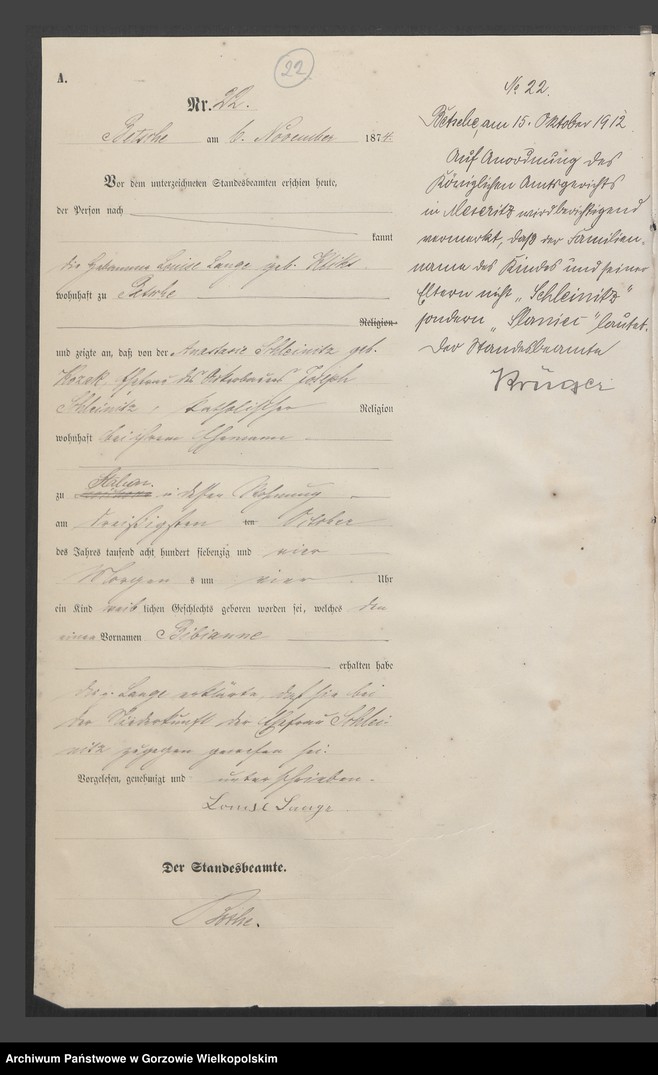 22
A.
Nr. 22.
Betsche am 6. November 1874.
Vor dem unterzeichneten Standesbeamten erschien heute,
der Person nach
kannt
die Hebamme Louise Lange geb.
wohnhaft zu Betsche
Religion
und zeigte an, daß von der Anastasie Schleinitz geb.
Kozak, Ehefrau des Joseph
Schleinitz, katholischer Religion
wohnhaft bei ihrem Ehemanne
zu in dessen Wohnung
am dreißigsten ten October
des Jahres tausend acht hundert siebenzig und vier
Morgens um vier Uhr
ein Kind weiblichen Geschlechts geboren worden sei, welches den
einen Vornamen Bibianne
erhalten habe
Die p. Lange erklärte, daß sie bei
der Niederkunft der Ehefrau Schlei-
nitz zugegen gewesen sei.
Vorgelesen, genehmigt und unterschrieben.
Louise Lange
Der Standesbeamte.
No 22.
Betsche, am 15. Oktober 1912
Auf Anordnung des
Königlichen Amtsgerichts
in Meseritz wird berichtigend
vermerkt, daß der Familien-
name des Kindes und seiner
Eltern nicht „Schleinitz"
sondern „Slaniec" lautet.
Der Standesbeamte
Krüger
Archiwum Państwowe w Gorzowie Wielkopolskim